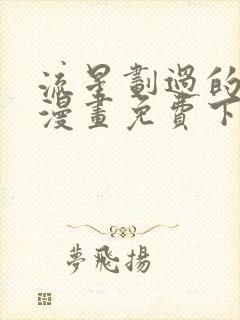 流星劃過的
漫畫免費下
夢飛揚